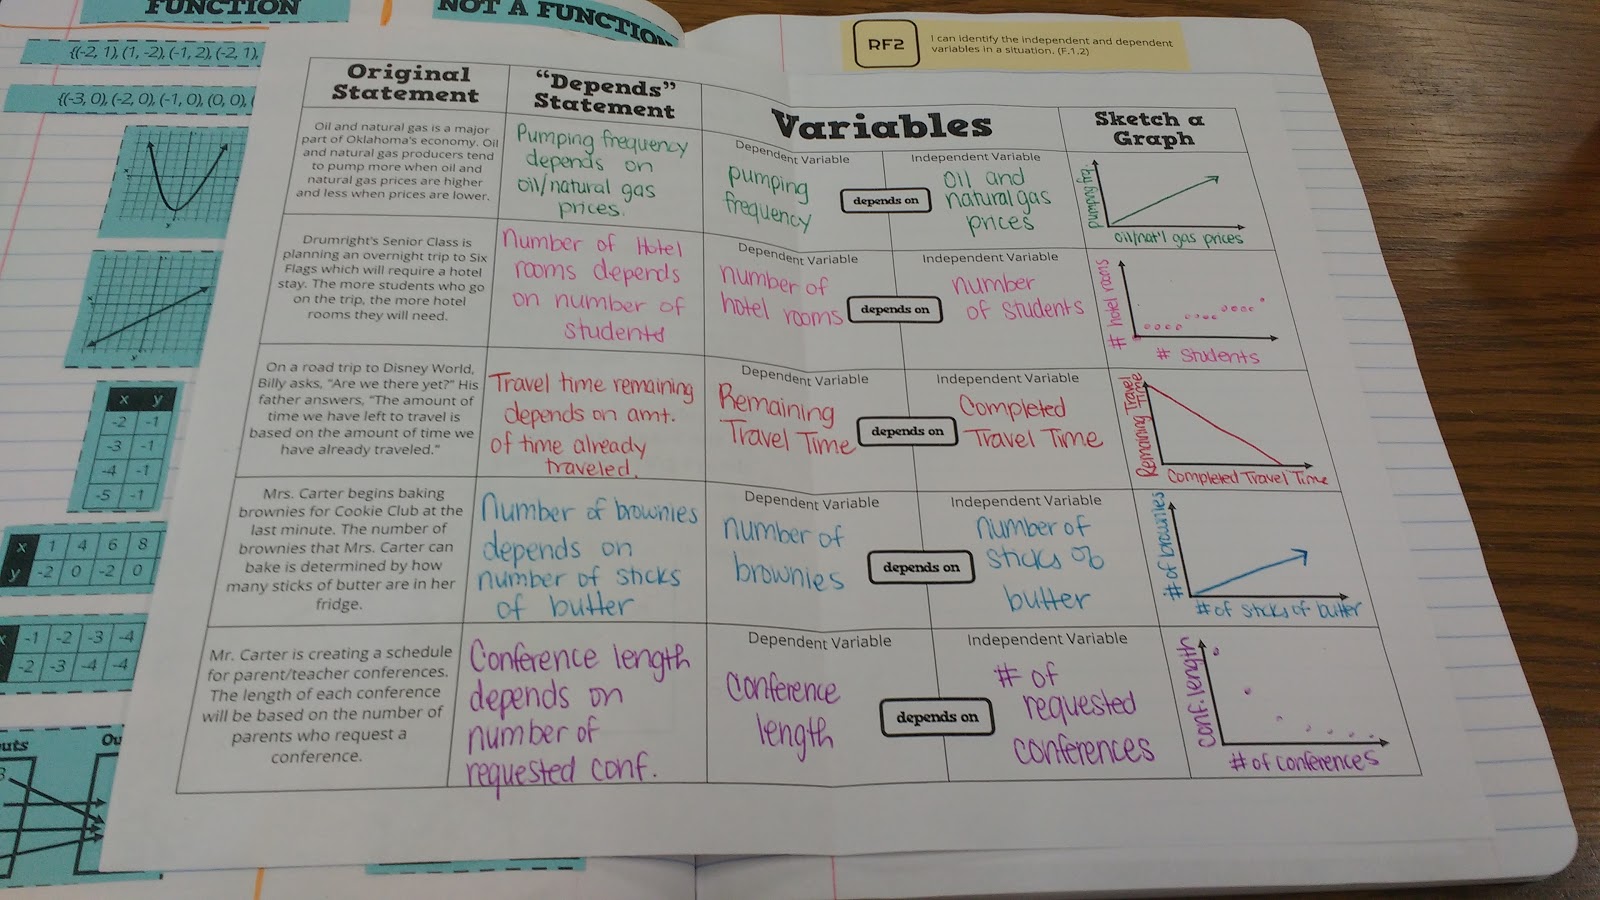 FUNCTION
NOT A FUNCTION
{(-2, 1), (1, -2), (-1, 2), (-2, 1),
{(-3, 0), (-2, 0), (-1, 0), (0, 0),
x y
-2 -1
-3 -1
-4 -1
-5 -1
x 1 4 6 8
y -2 0 -2 0
-1 -2 -3 -4
-2 -3 -4 -4
RF2
I can identify the independent and dependent
variables in a situation. (F.1.2)
Original
Statement
"Depends"
Statement
Variables
Sketch a
Graph
Oil and natural gas is a major
part of Oklahoma's economy. Oil
and natural gas producers tend
to pump more when oil and
natural gas prices are higher
and less when prices are lower.
Pumping frequency
depends on
oil/natural gas
prices.
Dependent Variable
pumping
frequency
depends on
Independent Variable
oil and
natural gas
prices
pumping frq.
oil/nat'l gas prices
Drumright's Senior Class is
planning an overnight trip to Six
Flags which will require a hotel
stay. The more students who go
on the trip, the more hotel
rooms they will need.
Number of Hotel
rooms depends
on number of
students
Dependent Variable
number of
hotel rooms
depends on
Independent Variable
number
of students
# hotel rooms
# students
On a road trip to Disney World,
Billy asks, "Are we there yet?" His
father answers, "The amount of
time we have left to travel is
based on the amount of time we
have already traveled."
Travel time remaining
depends on amt.
of time already
traveled.
Dependent Variable
Remaining
Travel Time
depends on
Independent Variable
Completed
Travel Time
Remaining Travel
Time
Completed Travel Time
Mrs. Carter begins baking
brownies for Cookie Club at the
last minute. The number of
brownies that Mrs. Carter can
bake is determined by how
many sticks of butter are in her
fridge.
Number of brownies
depends on
number of sticks
of butter
Dependent Variable
number of
brownies
depends on
Independent Variable
number of
sticks of
butter
# of brownies
# of sticks of butter
Mr. Carter is creating a schedule
for parent/teacher conferences.
The length of each conference
will be based on the number of
parents who request a
conference.
Conference length
depends on
number of
requested conf.
Dependent Variable
Conference
length
depends on
Independent Variable
# of
requested
conferences
conf. length
# of conferences